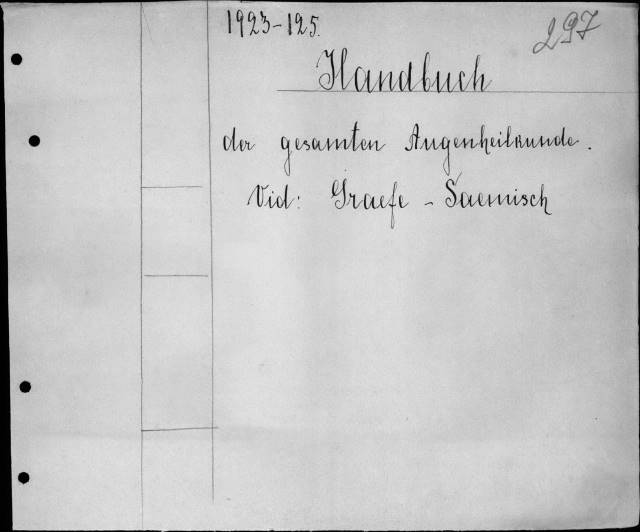 1923-125.
297
Handbuch
der gesamten Augenheilkunde.
Vid: Graefe - Saemisch